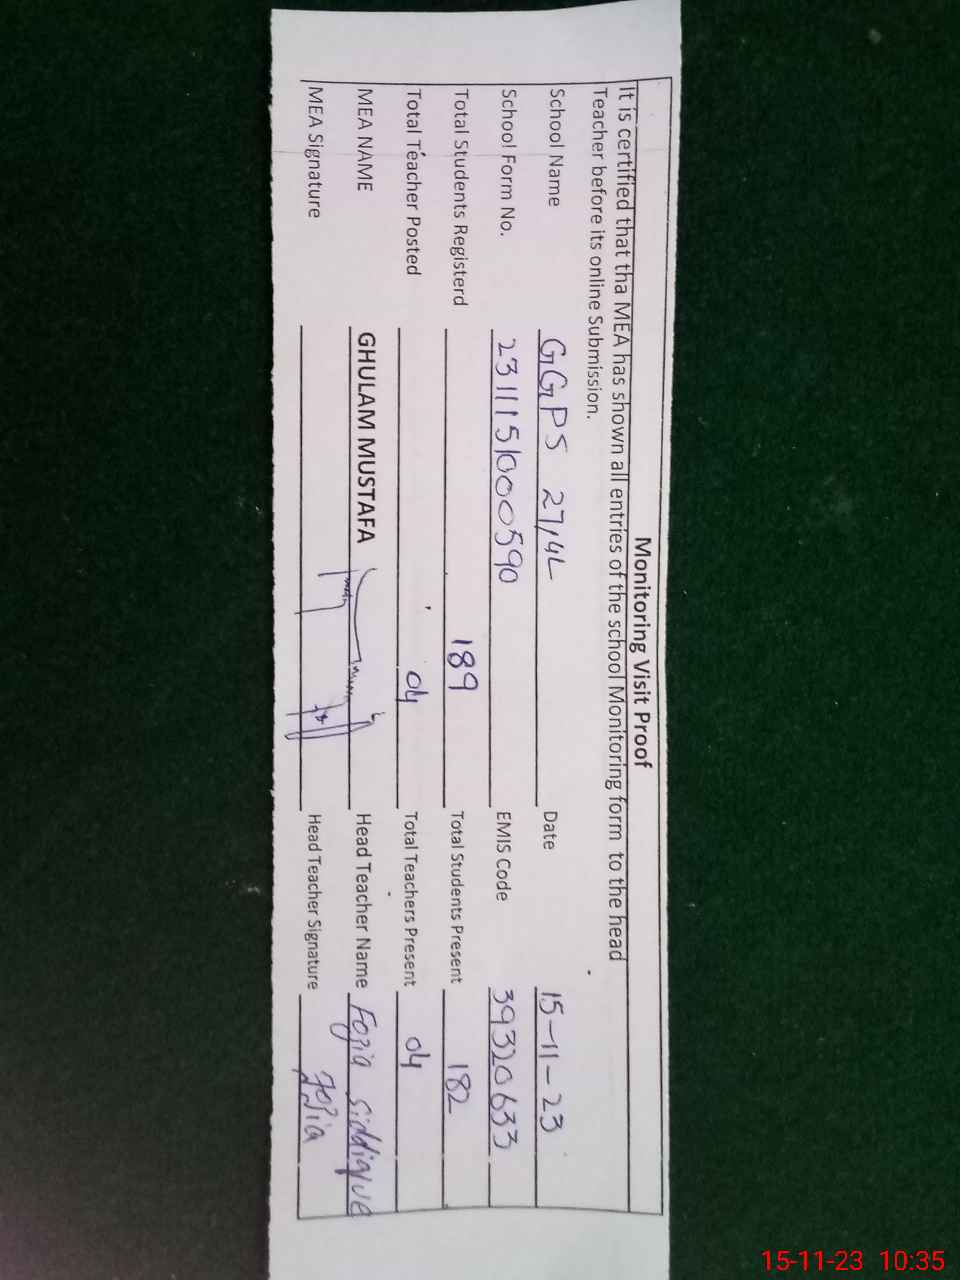 Monitoring Visit Proof
It is certified that tha MEA has shown all entries of the school Monitoring form to the head
Teacher before its online Submission.
School Name GGPS 27/4L Date 15-11-23
School Form No. 2311151000590 EMIS Code 39320633
Total Students Registerd 189 Total Students Present 182
Total Teacher Posted 04 Total Teachers Present 04
MEA NAME GHULAM MUSTAFA Head Teacher Name Fozia Siddique
MEA Signature Head Teacher Signature Fozia
15-11-23 10:35